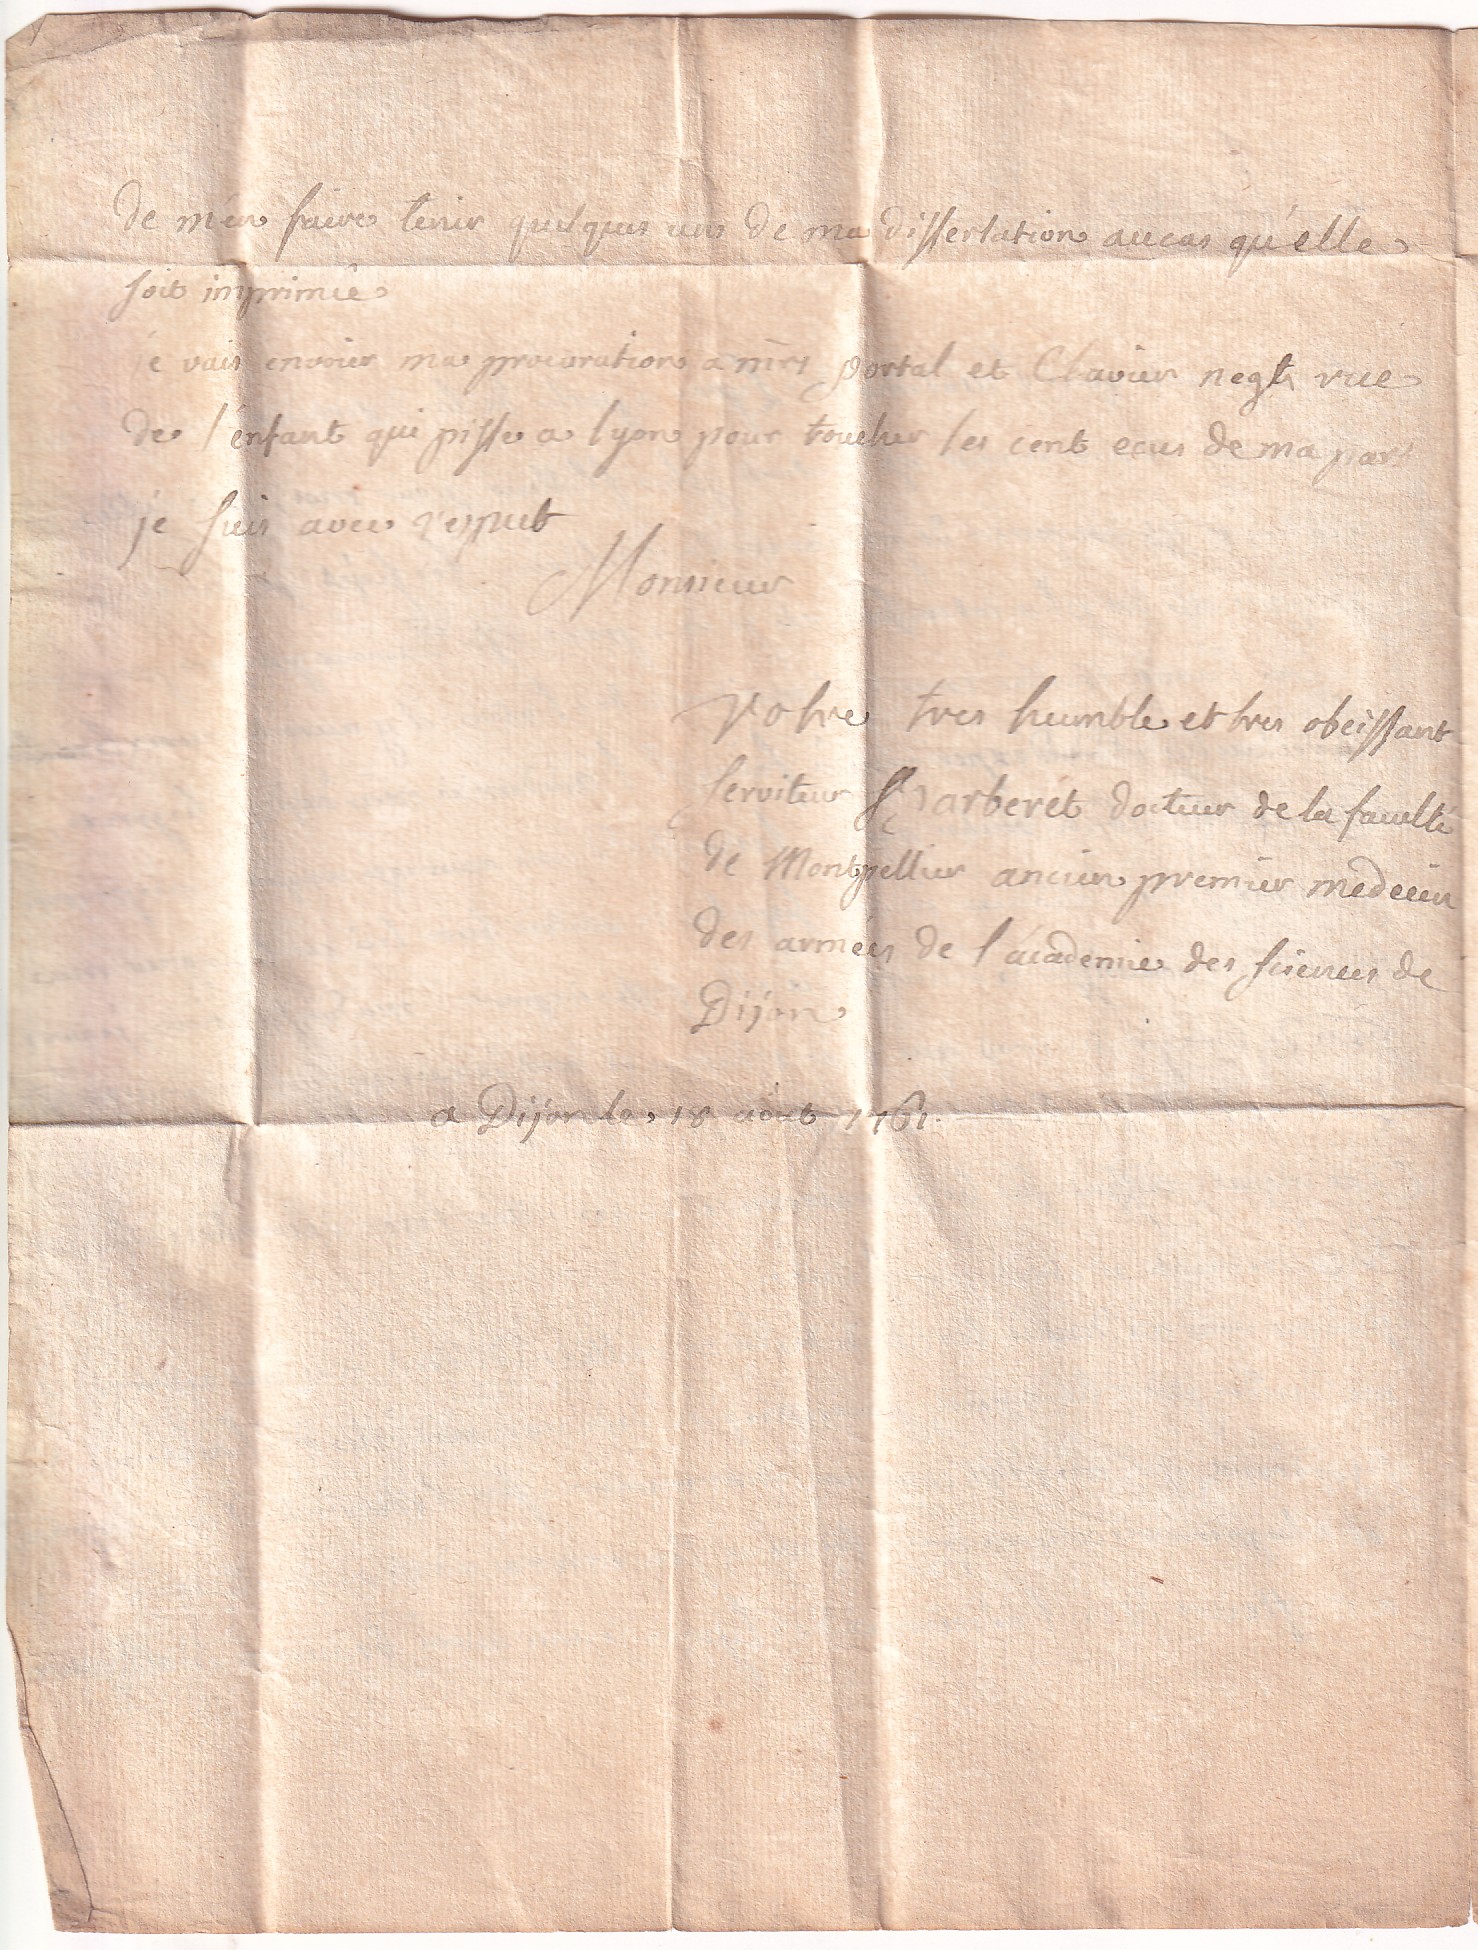 de m'en faire tenir quelques uns de ma dissertation aucas qu'elle
soit imprimée
je vais envoier ma procuration a mrs portal et Clavier negts rue
de l'enfant qui pisse a lyon pour toucher les cent ecus de ma part
je suis avec respect
Monsieur
votre tres humble et tres obeissant
serviteur Barberet docteur de la faculté
de Montpellier ancien premier medecin
des armées de l'academie des sciences de
Dijon
a Dijon le 18 aout 1761.